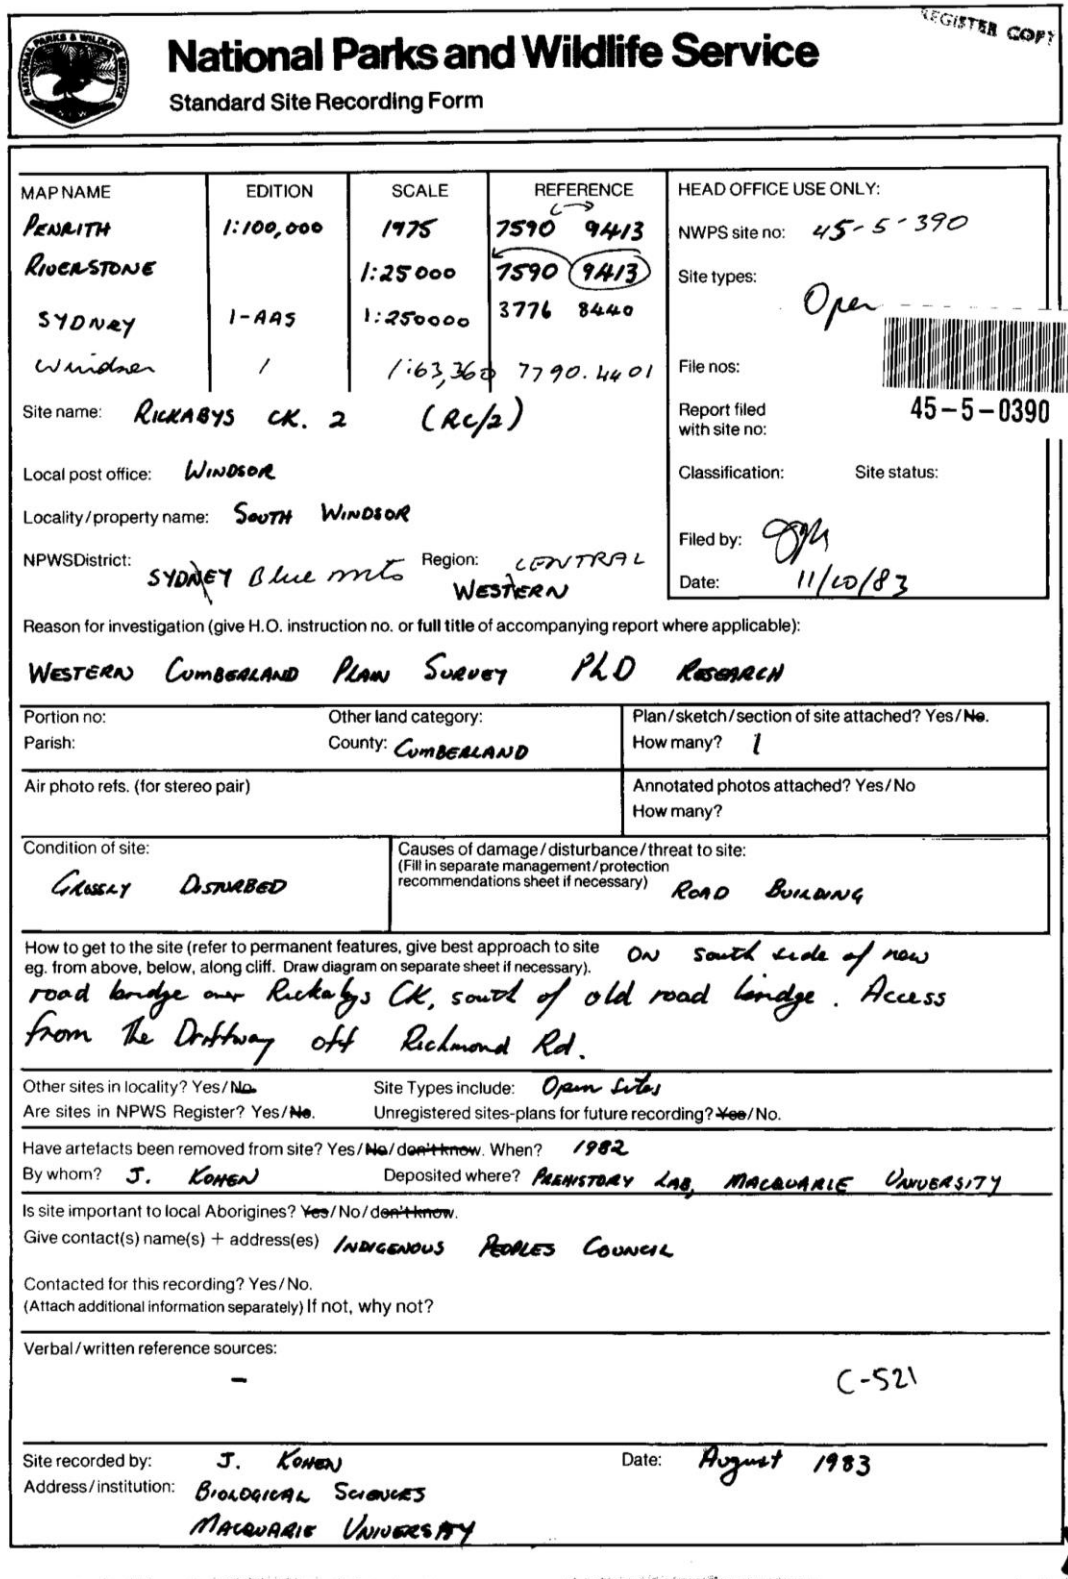 REGISTER COPY
NATIONAL PARKS & WILDLIFE SERVICE
National Parks and Wildlife Service
Standard Site Recording Form
MAP NAME EDITION SCALE REFERENCE
PENRITH 1:100,000 1975 7590 9413
RIVERSTONE 1:25000 7590 9413
SYDNEY 1-AAS 1:250000 3776 8440
Windsor 1 1:63,360 7790.4401
HEAD OFFICE USE ONLY:
NWPS site no: 45-5-390
Site types:
Open
File nos:
45-5-0390
Report filed
with site no:
Classification: Site status:
Filed by:
Date: 11/10/83
Site name: RICKABYS CK. 2 (RC/2)
Local post office: WINDSOR
Locality/property name: SOUTH WINDSOR
NPWS District: SYDNEY Blue mnts Region: CENTRAL
WESTERN
Reason for investigation (give H.O. instruction no. or full title of accompanying report where applicable):
WESTERN CUMBERLAND PLAIN SURVEY PhD RESEARCH
Portion no: Other land category: Plan/sketch/section of site attached? Yes/No.
Parish: County: CUMBERLAND How many? 1
Air photo refs. (for stereo pair) Annotated photos attached? Yes/No
How many?
Condition of site: Causes of damage/disturbance/threat to site:
(Fill in separate management/protection
GROSSLY DISTURBED recommendations sheet if necessary) ROAD BUILDING
How to get to the site (refer to permanent features, give best approach to site ON south side of new
eg. from above, below, along cliff. Draw diagram on separate sheet if necessary).
road bridge over Rickabys CK, south of old road bridge. Access
from the Driftway off Richmond Rd.
Other sites in locality? Yes/No. Site Types include: Open Sites
Are sites in NPWS Register? Yes/No. Unregistered sites-plans for future recording? Yes/No.
Have artefacts been removed from site? Yes/No/don't know. When? 1982
By whom? J. KOHEN Deposited where? PREHISTORY LAB, MACQUARIE UNIVERSITY
Is site important to local Aborigines? Yes/No/don't know.
Give contact(s) name(s) + address(es) INDIGENOUS PEOPLES COUNCIL
Contacted for this recording? Yes/No.
(Attach additional information separately) If not, why not?
Verbal/written reference sources:
– C-521
Site recorded by: J. KOHEN Date: August 1983
Address/institution: BIOLOGICAL SCIENCES
MACQUARIE UNIVERSITY